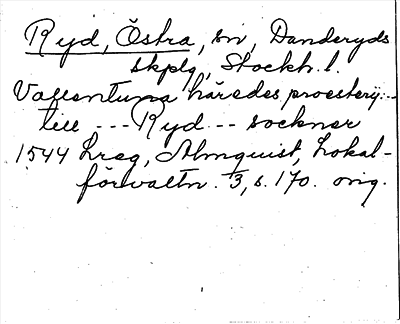 Ryd, Östra, sn, Danderyds
skplg, Stockh. l.
Vallentuna häredes proesterij...
till --- Ryd --- socknar
1544 Lreg, Almquist, Lokal-
förvaltn. 3, s. 170. orig.